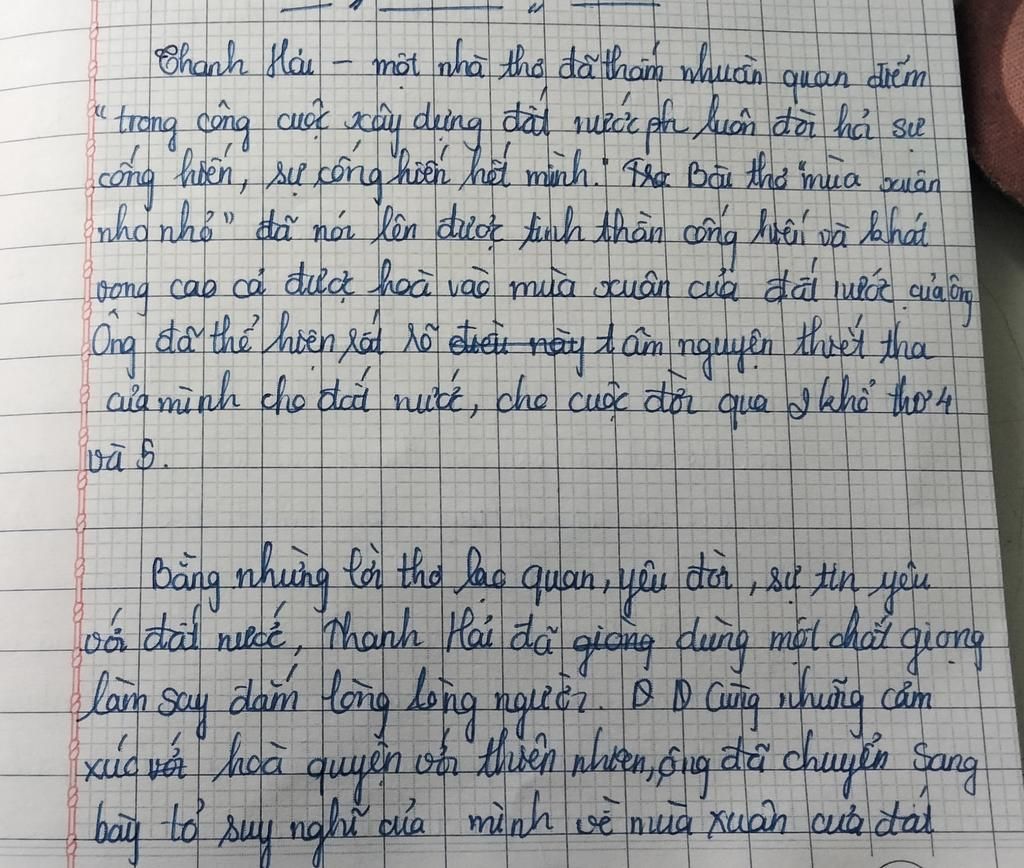 Thanh Hải – một nhà thơ đã thấm nhuần quan điểm
"trong công cuộc xây dựng đất nước ph luôn đòi hỏi sự
cống hiến, sự cống hiến hết mình." Bài thơ "mùa xuân
nho nhỏ" đã nói lên được tinh thần cống hiến và khát
vọng cao cả được hoà vào mùa xuân của đất nước của ông
Ông đã thể hiện rất rõ điều này tâm nguyện thiết tha
của mình cho đất nước, cho cuộc đời qua 2 khổ thơ 4
và 5.
Bằng những lời thơ lạc quan, yêu đời, sự tin yêu
với đất nước, Thanh Hải đã giọng dùng một chất giọng
làm say đắm lòng lòng người. Cùng những cảm
xúc với hoà quyện với thiên nhiên, ông đã chuyển sang
bày tỏ suy nghĩ của mình về mùa xuân của đất